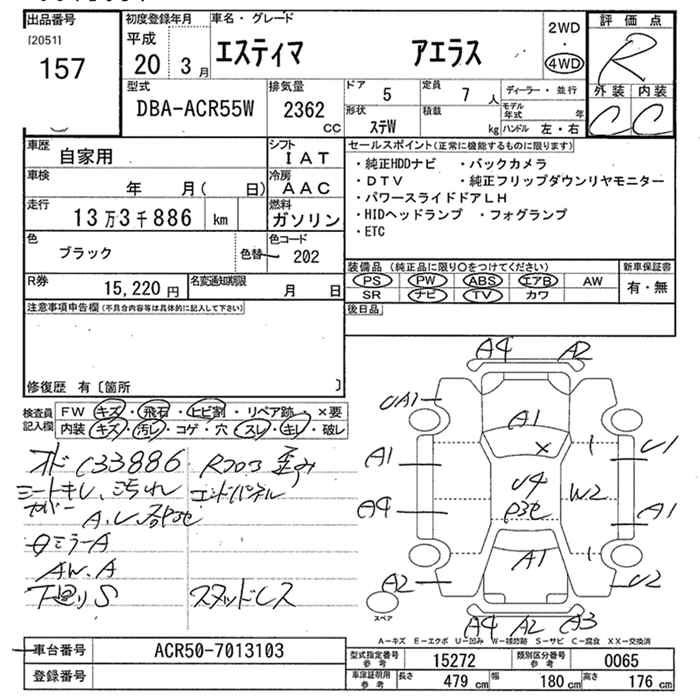 出品番号
[2051]
157
初度登録年月
平成
20 3月
車名・グレード
エスティマ アエラス
2WD
・
4WD
評価点
R
外装 内装
C C
型式
DBA-ACR55W
排気量
2362
CC
ドア
5
定員
7 人
形状
ステW
積載
kg
ディーラー・並行
モデル年式 年
ハンドル 左・右
車歴
自家用
シフト
IAT
車検
年 月( 日)
冷房
AAC
走行
13万3千886 km
燃料
ガソリン
色
ブラック
色替
色コード
202
R券
15,220 円
名変通知期限
月 日
セールスポイント(正常に機能するものに限ります)
・純正HDDナビ ・バックカメラ
・DTV ・純正フリップダウンリヤモニター
・パワースライドドアLH
・HIDヘッドランプ ・フォグランプ
・ETC
装備品(純正品に限り○をつけてください)
PS PW ABS エアB AW
SR ナビ TV カワ
新車保証書
有・無
後日品
注意事項申告欄(不具合内容等は具体的に記入して下さい)
修復歴 有〔箇所 〕
検査員
記入欄
FW キズ・飛石・ヒビ割・リペア跡・×要
内装 キズ・汚レ・コゲ・穴・スレ・キレ・破レ
オド 133886 Rフロア歪み
シートキレ、汚れ エンドパネル
カバー
A、U
ミラーA
AW、A
下廻りS スタッドレス
A4 A2
UA1
A1
A1
U1
X
A1
U4
W2
A4
A1
A1
A2
U2
A4 A2 A3
スペア
A-キズ E-エクボ U-凹み W-補修跡 S-サビ C-腐食 XX-交換済
車台番号
ACR50-7013103
登録番号
型式指定番号
参考
15272
類別区分番号
参考
0065
車庫証明用
参考
長さ 479 cm 幅 180 cm 高さ 176 cm